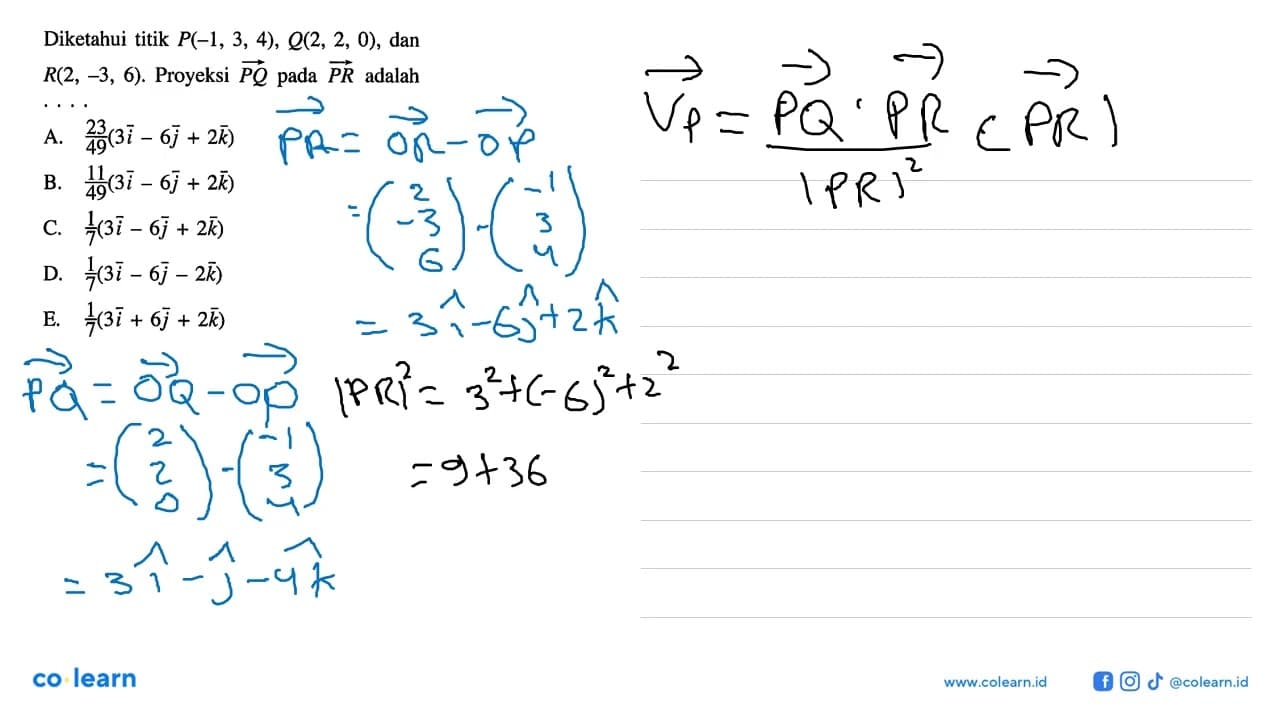 Diketahui titik P(–1, 3, 4), Q(2, 2, 0), dan
R(2, –3, 6). Proyeksi \overrightarrow{PQ} pada \overrightarrow{PR} adalah
. . . .
A. \frac{23}{49}(3\bar{i} – 6\bar{j} + 2\bar{k})
B. \frac{11}{49}(3\bar{i} – 6\bar{j} + 2\bar{k})
C. \frac{1}{7}(3\bar{i} – 6\bar{j} + 2\bar{k})
D. \frac{1}{7}(3\bar{i} – 6\bar{j} – 2\bar{k})
E. \frac{1}{7}(3\bar{i} + 6\bar{j} + 2\bar{k})
\overrightarrow{PR} = \overrightarrow{OR} - \overrightarrow{OP}
= \begin{pmatrix} 2 \\ -3 \\ 6 \end{pmatrix} - \begin{pmatrix} -1 \\ 3 \\ 4 \end{pmatrix}
= 3\hat{i} - 6\hat{j} + 2\hat{k}
\overrightarrow{PQ} = \overrightarrow{OQ} - \overrightarrow{OP}
= \begin{pmatrix} 2 \\ 2 \\ 0 \end{pmatrix} - \begin{pmatrix} -1 \\ 3 \\ 4 \end{pmatrix}
= 3\hat{i} - \hat{j} - 4\hat{k}
|PR|^2 = 3^2 + (-6)^2 + 2^2
= 9 + 36
\overrightarrow{Vp} = \frac{\overrightarrow{PQ} \cdot \overrightarrow{PR}}{|PR|^2} (\overrightarrow{PR})
co learn
www.colearn.id
@colearn.id